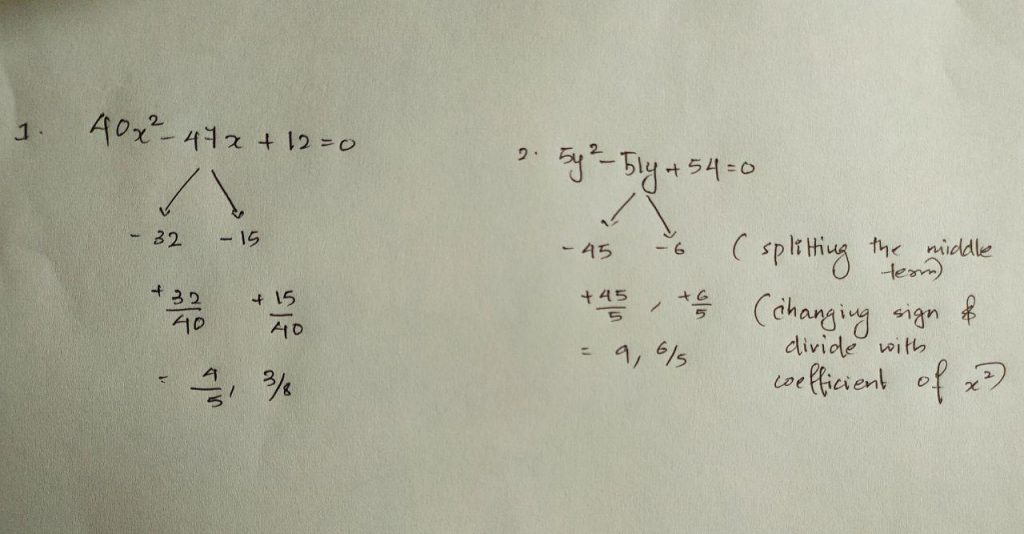 1. 40x² - 47x + 12 = 0
- 32 - 15
+ 32/40 + 15/40
= 4/5, 3/8
2. 5y² - 51y + 54 = 0
- 45 - 6 (splitting the middle
term)
+ 45/5 , + 6/5 (changing sign &
divide with
= 9, 6/5
coefficient of x²)